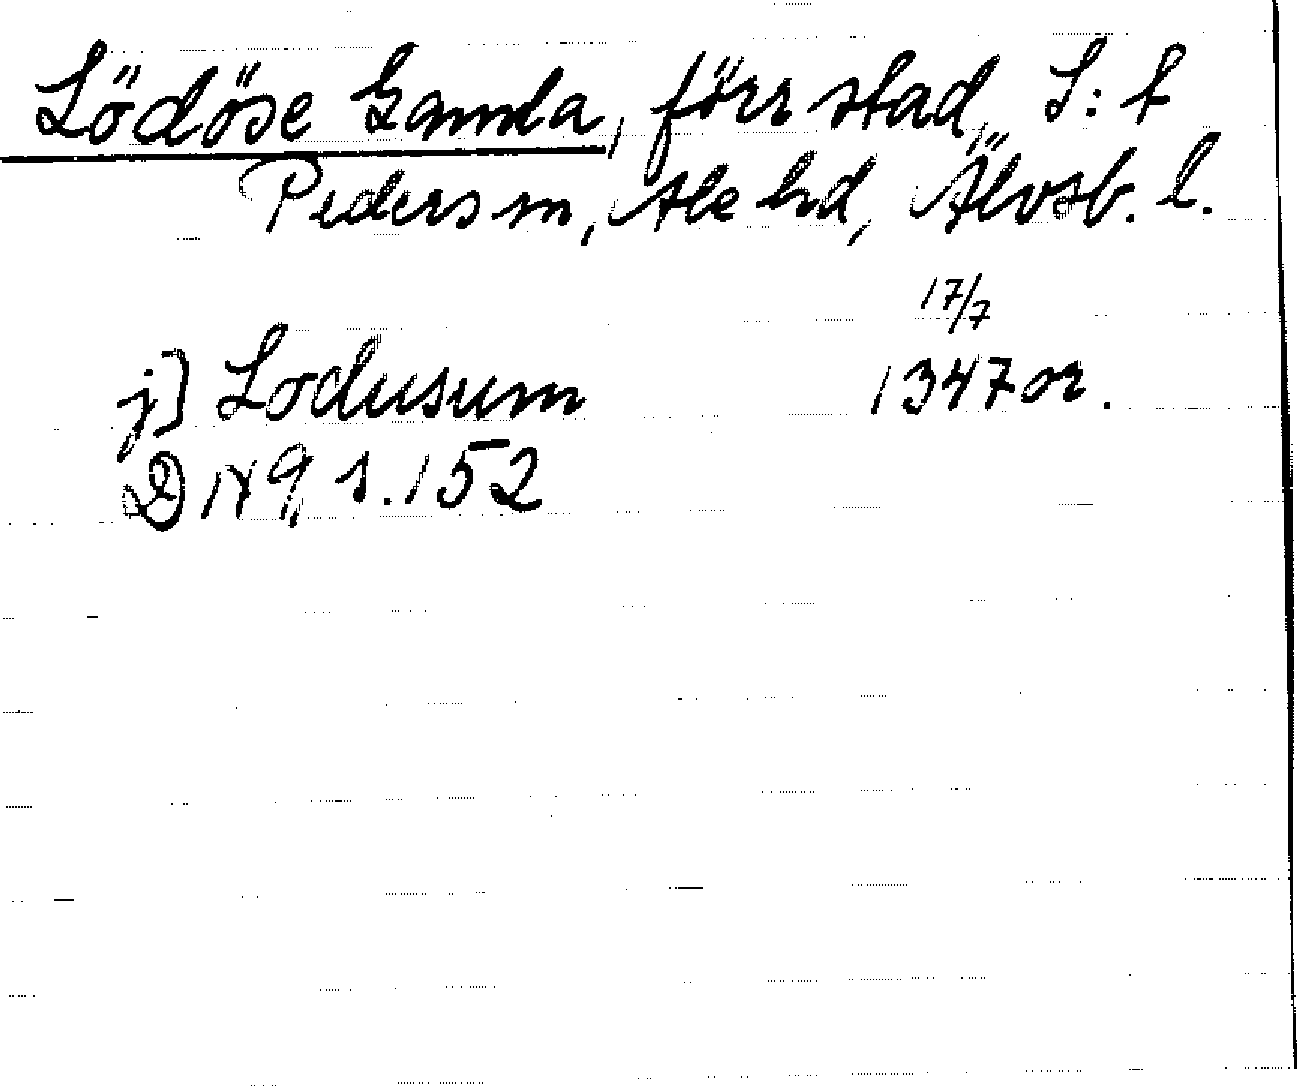 Lödöse Gamla, förr stad, S:t
Peders sn, Ale hd, Älvsb. l.
17/7
j] Lodusum 1347 or.
DN 9, s. 152